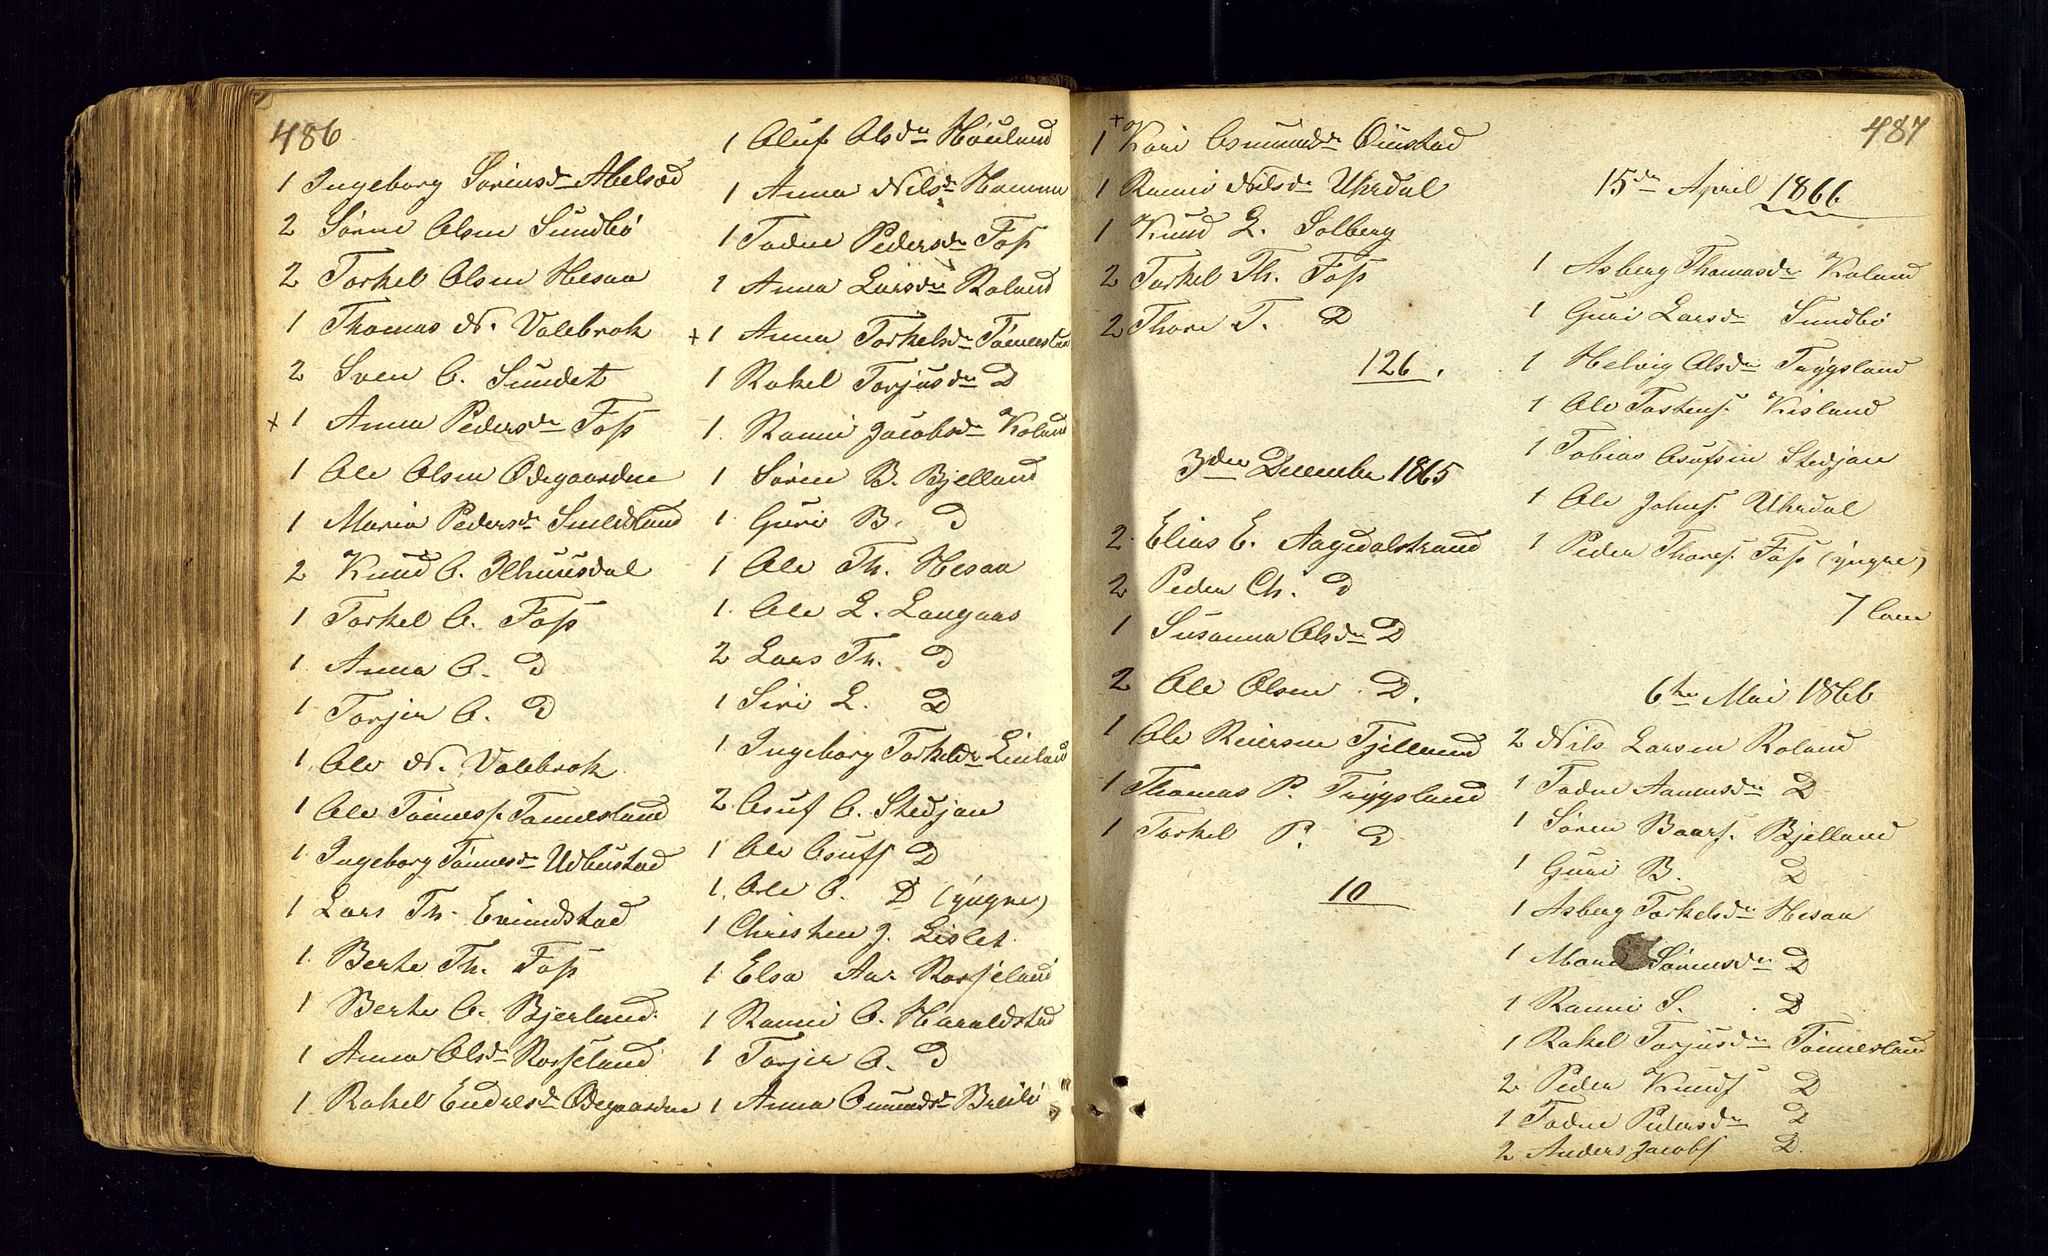 486
1 Ingeborg Sørensdr Abelsæd
2 Sören Olsen Sundbö
2 Torkel Olsen Hesaa
1 Thomas N. Valebrok
2 Sven O. Sundet
+ 1 Anna Pedersdr Foss
1 Ole Olsen Ødegaarden
1 Maria Pedersdr Smeldslund
2 Knud O.
1 Torkel O. Foss
1 Anna O. D
1 Torjer O. D
1 Ole N. Valebrok
1 Ole Tönness. Tonnesland
1 Ingeborg Tönnesdr Udbustad
1 Lars Th. Evindstad
1 Berte Th. Foss
1 Berte O. Bjerland
1 Anna Olsdr Rosseland
1 Rakel Endresdr Ødegaarden
1 Oluf Olsdr Höuland
1 Anna Nilsdr Homme
1 Todne Pedersdr Foss
1 Anna Larsdr Roland
+ 1 Anna Torkelsdr Tönnesland
1 Rakel Torjusdr D
1 Ranni Jacobsdr Koland
1 Sören B. Bjelland
1 Guri B. D
1 Ole Th. Hesaa
1 Ole L. Langaas
2 Lars Th. D
1 Siri L. D
1 Ingeborg Torkelsdr Linland
2 Osuf O. Stedjan
1 Ole Osufs D
1 Ole O. D (yngre)
1 Christen J. Lislet
1 Elsa Aar Rosseland
1 Ranni O. Haraldstad
1 Torjer O. D
1 Anna Omundsdr Breili
487
+
1 Kari Osmundsdr Öiustad
1 Ranni Nilsdr Uhrdal
1 Knud L. Solberg
2 Torkel Th. Foss
2 Thore T. D
126.
3den December 1865
2 Elias E. Aagedalstrand
2 Peder Ch. D
1 Susanna Olsdr D
2 Ole Olsen D.
1 Ole Reiersen Fjelland
1 Thomas P. Trygsland
1 Torkel P. D
10
15de April 1866
1 Asberg Thomasdr Koland
1 Guri Larsdr Sundbö
1 Helvig Olsdr Trygsland
1 Ole Tostens. Kisland
1 Tobias Osufsen Stedjan
1 Ole Johns. Uhrdal
1 Peder Thores. Foss (yngre)
7
6te Mai 1866
2 Nils Larsen Roland
1 Todne Aanensdr D
1 Sören Baars. Bjelland
1 Guri B. D
1 Asberg Torkelsdr Hesaa
1 Sörensdr D
1 Ranni S. D
1 Rakel Torjusdr Tönnesland
2 Peder Knuds D
1 Todne Pedersdr D
2 Anders Jacobs D.